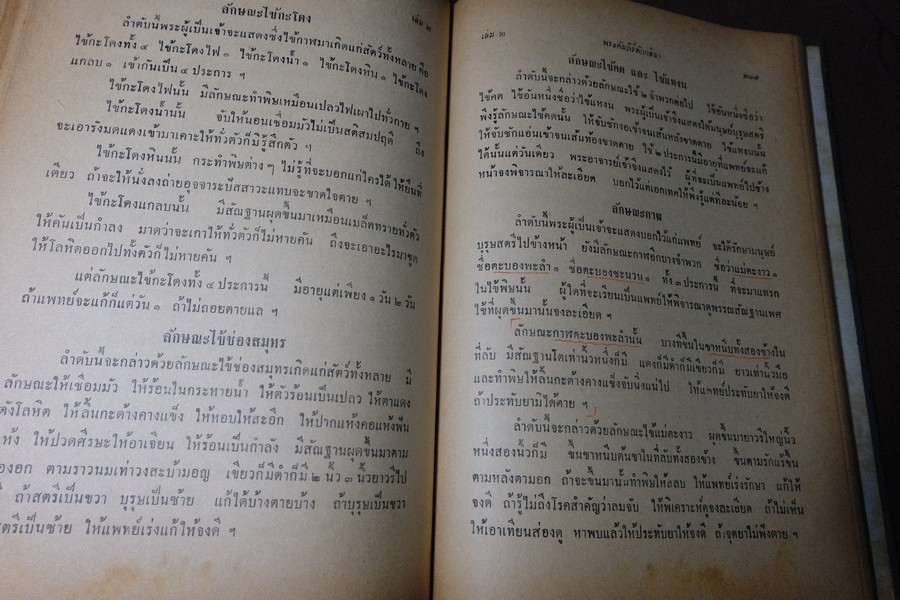 เล่ม ๒
ลักษณะไข้กะโดง
ลำดับนี้พระผู้เป็นเจ้าจะแสดงซึ่งไข้กาฬมาเกิดแก่สัตว์ทั้งหลาย คือ
ไข้กะโดงทั้ง ๔ ไข้กะโดงไฟ ๑ ไข้กะโดงน้ำ ๑ ไข้กะโดงหิน ๑ ไข้กะโดง
แกลบ ๑ เข้ากันเป็น ๔ ประการ ฯ
ไข้กะโดงไฟนั้น มีลักษณะทำพิษเหมือนเปลวไฟเผาไปทั่วกาย ฯ
ไข้กะโดงน้ำนั้น จับให้นอนเชื่อมมัวไม่เป็นสติสมปฤดี ถึง
จะเอารังมดแดงเข้ามาเคาะให้ทั่วตัวก็มิรู้สึกตัว ฯ
ไข้กะโดงหินนั้น กระทำพิษต่างๆ ไม่รู้ที่จะบอกแก่ใครได้ ให้ยืนที่
เดียว ถ้าจะให้นั่งลงถ่ายอุจจาระปัสสาวะแทบจะขาดใจตาย ฯ
ไข้กะโดงแกลบนั้น มีสัณฐานผุดขึ้นมาเหมือนเมล็ดทรายทั่วตัว
ให้คันเป็นกำลัง มาดว่าจะเกาให้ทั่วตัวก็ไม่หายคัน ถึงจะเอาอะไรมาขูด
ให้โลหิตออกไปทั้งตัวก็ไม่หายคัน ฯ
แต่ลักษณะไข้กะโดงทั้ง ๔ ประการนี้ มีอายุแต่เพียง ๑ วัน ๒ วัน
ถ้าแพทย์จะแก้ก็แต่วัน ๑ ถ้าไม่ถอยตายแล ฯ
ลักษณะไข้ช่องสมุทร
ลำดับนี้จะกล่าวด้วยลักษณะไข้ช่องสมุทรเกิดแก่สัตว์ทั้งหลาย มี
ลักษณะให้เชื่อมมัว ให้ร้อนในกระหายน้ำ ให้ตัวร้อนเป็นเปลว ให้ตาแดง
ดังโลหิต ให้ลิ้นกะด้างคางแข็ง ให้หอบให้สะอึก ให้ปากแห้งคอแห้งฟัน
แห้ง ให้ปวดศีรษะให้อาเจียน ให้ร้อนเป็นกำลัง มีสัณฐานผุดขึ้นมาตาม
องอก ตามราวนมเท่าวงสะบ้ามอญ เขียวก็มีดำก็มี ๒ นิ้ว ๓ นิ้วยาวรีไป
ถ้าสตรีเป็นขวา บุรุษเป็นซ้าย แก้ได้บ้างตายบ้าง ถ้าบุรุษเป็นขวา
สตรีเป็นซ้าย ให้แพทย์เร่งแก้ให้จงดี ฯ
เล่ม ๒ พระคัมภีร์ตักกศิลา
ลักษณะไข้คด และ ไข้แหงน
ลำดับนี้จะกล่าวด้วยลักษณะไข้ ๒ จำพวกต่อไป ไข้อันหนึ่งชื่อว่า
ไข้คด ไข้อันหนึ่งชื่อว่าไข้แหงน พระผู้เป็นเจ้าจึงแสดงให้มนุษย์บุรุษสตรี
พึงรู้ลักษณะไข้คดนั้น ให้จับชักงอเข้าจนเส้นหลังขาดตาย ไข้แหงนนั้น
ให้จับชักแอ่นเข้าจนเส้นท้องขาดตาย ไข้ ๒ ประการนี้มีอายุที่แพทย์จะแก้
ได้นั้นแต่วันเดียว พระอาจารย์เจ้าจึงแสดงไว้ ผู้ที่จะเป็นแพทย์ไปข้าง
หน้าจงพิจารณาให้ละเอียด บอกไว้แต่เอกเทศให้พึงรู้แต่ทีละน้อย ฯ
ลักษณะกาฬ
ลำดับนี้พระผู้เป็นเจ้าจะแสดงบอกไว้แก่แพทย์ จะได้รักษามนุษย์
บุรุษสตรีไปข้างหน้า ยังมีลักษณะกาฬอีกบางจำพวก ชื่อว่าแม่ตะงาว ๑
ชื่อตะบองพะลำ ๑ ชื่อตะบองชะนวน ๑ ทั้ง ๓ ประการนี้ ที่จะมาแทรก
ในไข้พิษนั้น ผู้ใดที่จะเรียนเป็นแพทย์ให้พิจารณาดูพรรณสัณฐานเพศ
ไข้ที่ผุดขึ้นมานั้นจงละเอียด ฯ
ลักษณะกาฬตะบองพะลำนั้น บางทีขึ้นในขาหนีบทั้งสองข้างใน
ที่ลับ มีสัณฐานโตเท่านิ้วหนึ่งก็มี แดงก็มีดำก็มีเขียวก็มี ยาวเท่านิ้วมือ
และทำพิษให้ลิ้นกะด้างคางแข็งจับนิ่งแน่ไป ให้แพทย์ประทับยาให้จงดี
ถ้าประทับยามิได้ตาย ฯ
ลำดับนี้จะกล่าวด้วยลักษณะไข้แม่ตะงาว ผุดขึ้นมายาวรีใหญ่นิ้ว
หนึ่งสองนิ้วก็มี ขึ้นขาหนีบต้นขาในที่ลับทั้งสองข้าง ขึ้นตามรักแร้ขึ้น
ตามหลังตามอก ถ้าจะขึ้นมานั้นทำพิษให้สลบ ให้แพทย์เร่งรักษา แก้ให้
จงดี ถ้ารู้ไม่ถึงโรคสำคัญว่าลมจับ ให้พิเคราะห์ดูจงละเอียด ถ้าไม่เห็น
ให้เอาเทียนส่องดู หาพบแล้วให้ประทับยาให้จงดี ถ้าจุดยาไม่พึงตาย ฯ